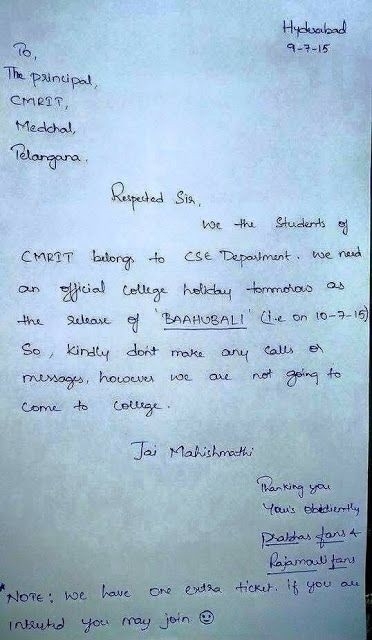 Hyderabad
9-7-15
To,
The principal,
CMRIT,
Medchal,
Telangana.
Respected Sir,
We the Students of
CMRIT belongs to CSE Department. We need
an official college holiday tommorow as
the release of 'BAAHUBALI' (i.e on 10-7-15)
So, kindly dont make any calls or
messages, however we are not going to
come to college.
Jai Mahishmathi
Thanking you
Your's obediently
Prabhas fans &
Rajamouli fans
*NOTE: We have one extra ticket. if you are
intrested you may join ☺